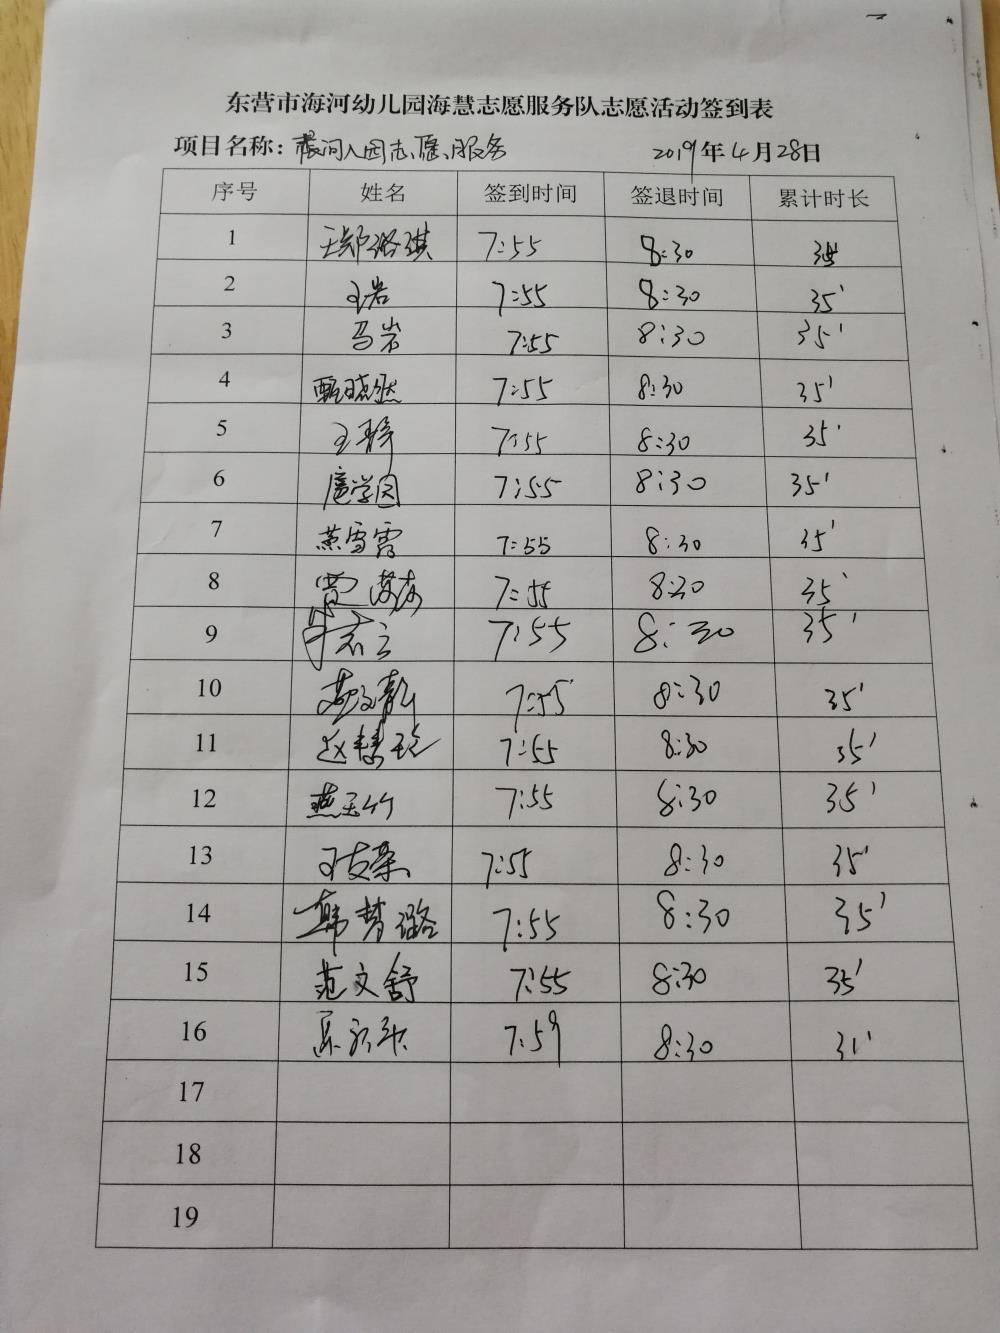 东营市海河幼儿园海慧志愿服务队志愿活动签到表
项目名称：晨间入园志愿服务 2019年4月28日
序号 姓名 签到时间 签退时间 累计时长
1 王郑璐琪 7:55 8:30 35
2 王岩 7:55 8:30 35'
3 马岩 7:55 8:30 35'
4 甄晓燃 7:55 8:30 35'
5 王静 7:55 8:30 35'
6 扈学国 7:55 8:30 35'
7 燕雪霞 7:55 8:30 35'
8 贾 7:55 8:30 35'
9 7:55 8:30 35'
10 7:55 8:30 35'
11 赵慧 7:55 8:30 35'
12 燕玉竹 7:55 8:30 35'
13 王志荣 7:55 8:30 35'
14 韩梦璐 7:55 8:30 35'
15 范文舒 7:55 8:30 35'
16 7:59 8:30 31'
17
18
19